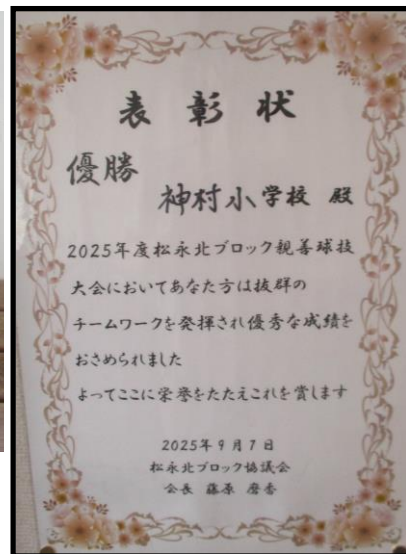 表彰状
優勝
神村小学校 殿
2025年度松永北ブロック親善球技
大会においてあなた方は抜群の
チームワークを発揮され優秀な成績を
おさめられました
よってここに栄誉をたたえこれを賞します
2025年9月7日
松永北ブロック協議会
会長 藤原 磨香